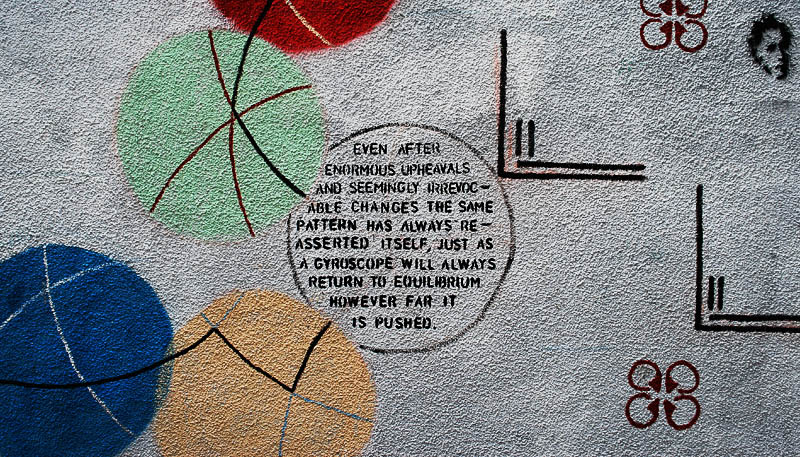 EVEN AFTER
ENORMOUS UPHEAVALS
AND SEEMINGLY IRREVOC-
ABLE CHANGES THE SAME
PATTERN HAS ALWAYS RE-
ASSERTED ITSELF, JUST AS
A GYROSCOPE WILL ALWAYS
RETURN TO EQUILIBRIUM
HOWEVER FAR IT
IS PUSHED.